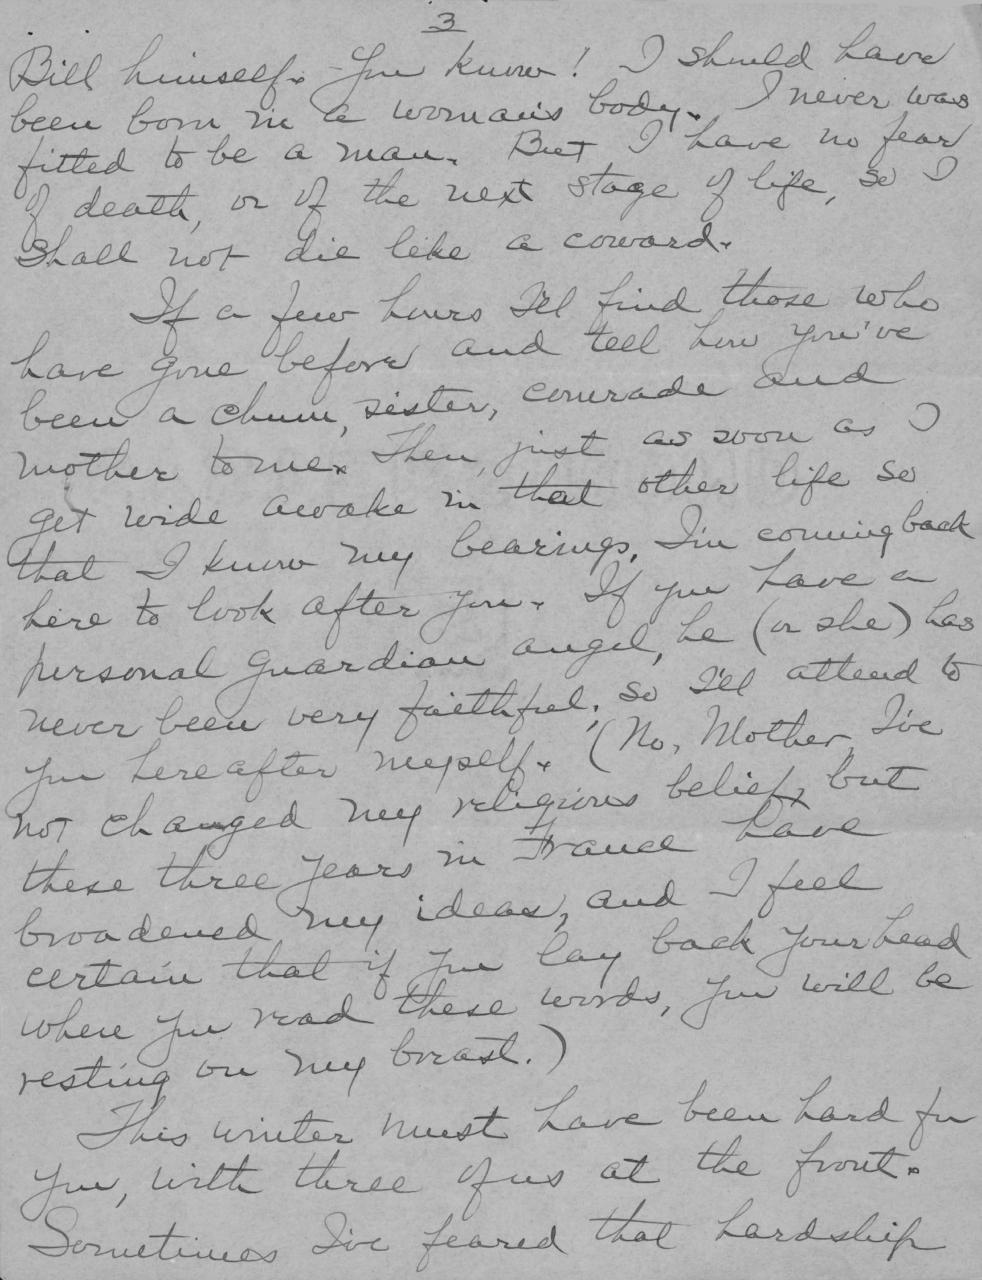 3
Bill himself. - You know! I should have
been born in a woman's body. I never was
fitted to be a man. But I have no fear
of death, or of the next stage of life, so I
shall not die like a coward.
If a few hours I'll find those who
have gone before and tell how you've
been a chum, sister, comrade and
mother to me. Then, just as soon as I
get wide awake in that other life so
that I know my bearings, I'm coming back
here to look after you. If you have a
personal guardian angel, he (or she) has
never been very faithful, so I'll attend to
you hereafter myself. (No, Mother, I've
not changed my religious belief, but
these three years in France have
broadened my ideas, and I feel
certain that if you lay back your head
when you read these words, you will be
resting on my breast.)
This winter must have been hard for
you, with three of us at the front.
Sometimes I've feared that hardship